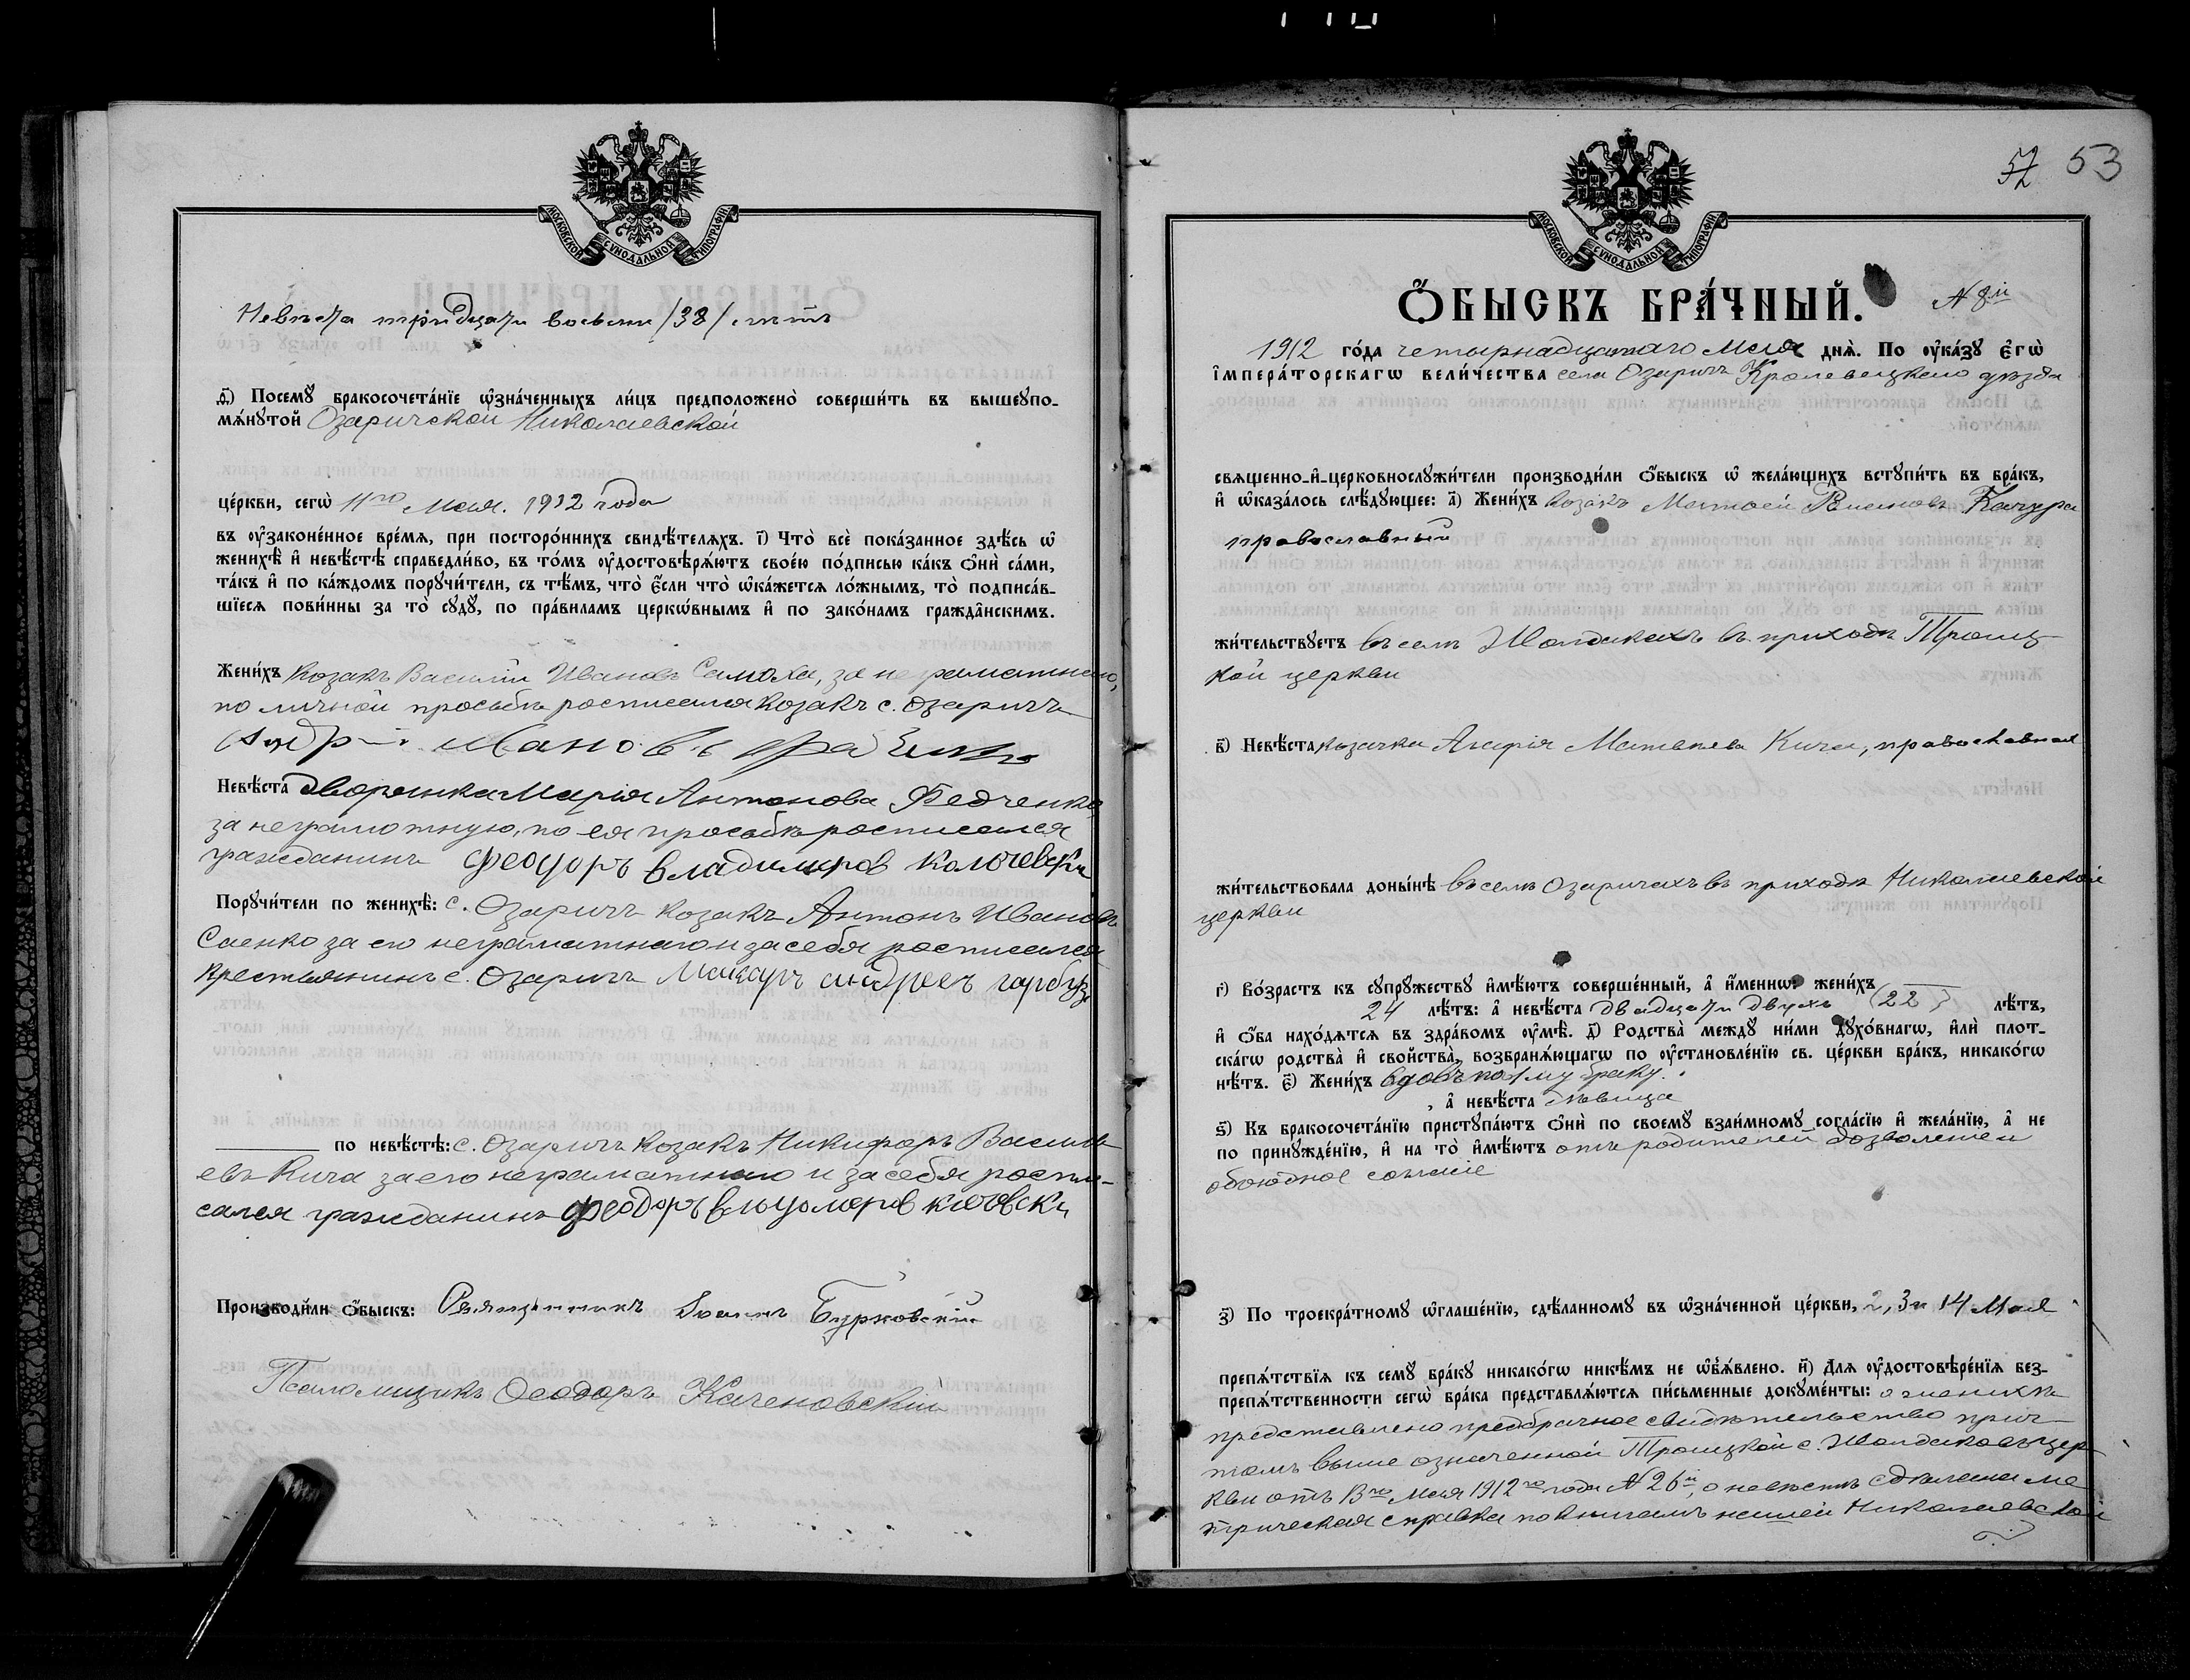 МОСКОВСКОЙ СѴНОДАЛЬНОЙ ТИПОГРАФІИ
Невѣста тридцати восьми /38/ лѣтъ
ѳ҃) Посемꙋ̀ бракосочета́нїе ѡ҆зна́ченныхъ ли́цъ предположено̀ соверши́ть въ вышеꙋпо-
мѧ́нꙋтой Озаричской Николаевской
це́ркви, сегѡ̀ 11го Мая. 1912 года
въ ᲂу҆законе́нное вре́мѧ, при посторо́ннихъ свидѣ́телѧхъ. і҃) Что̀ всѐ пока́занное здѣ́сь ѡ҆
женихѣ̀ и҆ невѣ́стѣ справедли́во, въ то́мъ ᲂу҆достовѣрѧ́ютъ свое́ю по́дписью ка́къ ѻ҆нѝ са́ми,
та́къ и҆ по ка́ждомъ порꙋчи́тели, съ тѣ́мъ, что̀ є҆́сли что̀ ѡ҆ка́жетсѧ ло́жнымъ, то̀ подписа́в-
шїесѧ пови́нны за то̀ сꙋдꙋ̀, по пра́виламъ церкѡ́внымъ и҆ по зако́намъ гражда̑нскимъ.
Жени́хъ Козакъ Василій Ивановъ Самоха, за неграматнаго,
по личной просьбѣ росписался козакъ с. Озаричъ
Ивановъ
Невѣ́ста дворянка Марія Антонова Федченко,
за неграмотную, по ея просьбѣ росписался
гражданинъ Феодоръ владимиров
Порꙋчи́тели по женихѣ̀: с. Озаричъ козакъ Антонъ Ивановъ
Саенко за его неграматнаго и за себя росписался
крестьянинъ с. Озаричъ Макаръ андреевъ гарбуз
по невѣ́стѣ: с. Озаричъ козакъ Никифоръ Василь
евъ Кича за его неграматнаго и за себя роспи-
сался гражданинъ Феодоръ
Производи́ли ѻ҆́быскъ: Священникъ Іоаннъ Бурковскій
Псаломщикъ Ѳеодоръ Каченовскій
МОСКОВСКОЙ СѴНОДАЛЬНОЙ ТИПОГРАФІИ
52 53
Ѻ҆́БЫСКЪ БРА́ЧНЫЙ. N 8й
1912 го́да четырнадцатаго Мая днѧ̀. По ᲂу҆ка́зꙋ є҆гѡ̀
і҆мпера́торскагѡ вели́чества села Озаричъ Кролевецкаго уѣзда
свѧщенно-и҆-церковнослꙋжи́тели производи́ли ѻ҆́быскъ ѡ҆ жела́ющихъ встꙋпи́ть въ бра́къ,
и҆ ѡ҆каза́лось слѣ́дꙋющее: а҃) Жени́хъ козакъ Матөей Качура
православный
жи́тельствꙋетъ въ селѣ Шолдакахъ въ приходѣ Троиц-
кой церкви
в҃) Невѣ́ста козачка Агарія Матвѣева Кича, православная
жи́тельствовала доны́нѣ въ селѣ Озаричахъ въ приходѣ Николаевской
церкви
г҃) Во́зрастъ къ сꙋпрꙋ́жествꙋ и҆мѣ́ютъ соверше́нный, а҆ и҆́меннѡ: жени́хъ
24 лѣ́тъ: а҆ невѣ́ста двадцати двухъ (22) лѣ́тъ,
и҆ ѻ҆́ба нахо́дѧтсѧ въ здра́вомъ ᲂу҆мѣ̀. д҃) Родства̀ междꙋ ни́ми дꙋхо́внагѡ, и҆лѝ плот-
ска́гѡ родства̀ и҆ свойства̀, возбранѧ́ющагѡ по ᲂу҆становле́нїю св. це́ркви бра́къ, никако́гѡ
нѣ́тъ. є҃) Жени́хъ вдовъ по 1му браку.
, а҆ невѣ́ста дѣвица
ѕ҃) Къ бракосочета́нїю пристꙋпа́ютъ ѻ҆нѝ по своемꙋ̀ взаи́мномꙋ согла́сїю и҆ жела́нїю, а҆ не
по принꙋжде́нїю, и҆ на то̀ и҆мѣ́ютъ отъ родителей дозволеніе и
обоюдное согласіе
з҃) По троекра́тномꙋ ѡ҆глаше́нїю, сдѣ́ланномꙋ въ ѡ҆зна́ченной це́ркви, 2, 3 и 14 Мая
препѧ́тствїѧ къ семꙋ̀ бра́кꙋ никако́гѡ никѣ́мъ не ѡ҆б̾ѧ́влено. и҃) Длѧ ᲂу҆достовѣре́нїѧ без-
препѧ́тственности сегѡ̀ бра́ка представлѧ́ютсѧ пи́сьменные докꙋме́нты: о женихѣ
представлено предбрачное свидѣтельство прич-
томъ выше означенной Троицкой с. Шолдаковъ цер
кви отъ 13го Мая 1912го года N 26й, о невѣстѣ сдѣлана ме
трическая справка по книгамъ нашей Николаевской